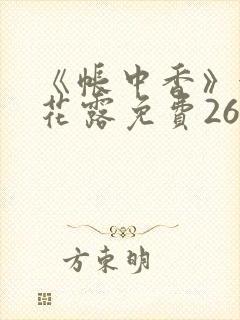 《帐中香》
花露免費26
方束明